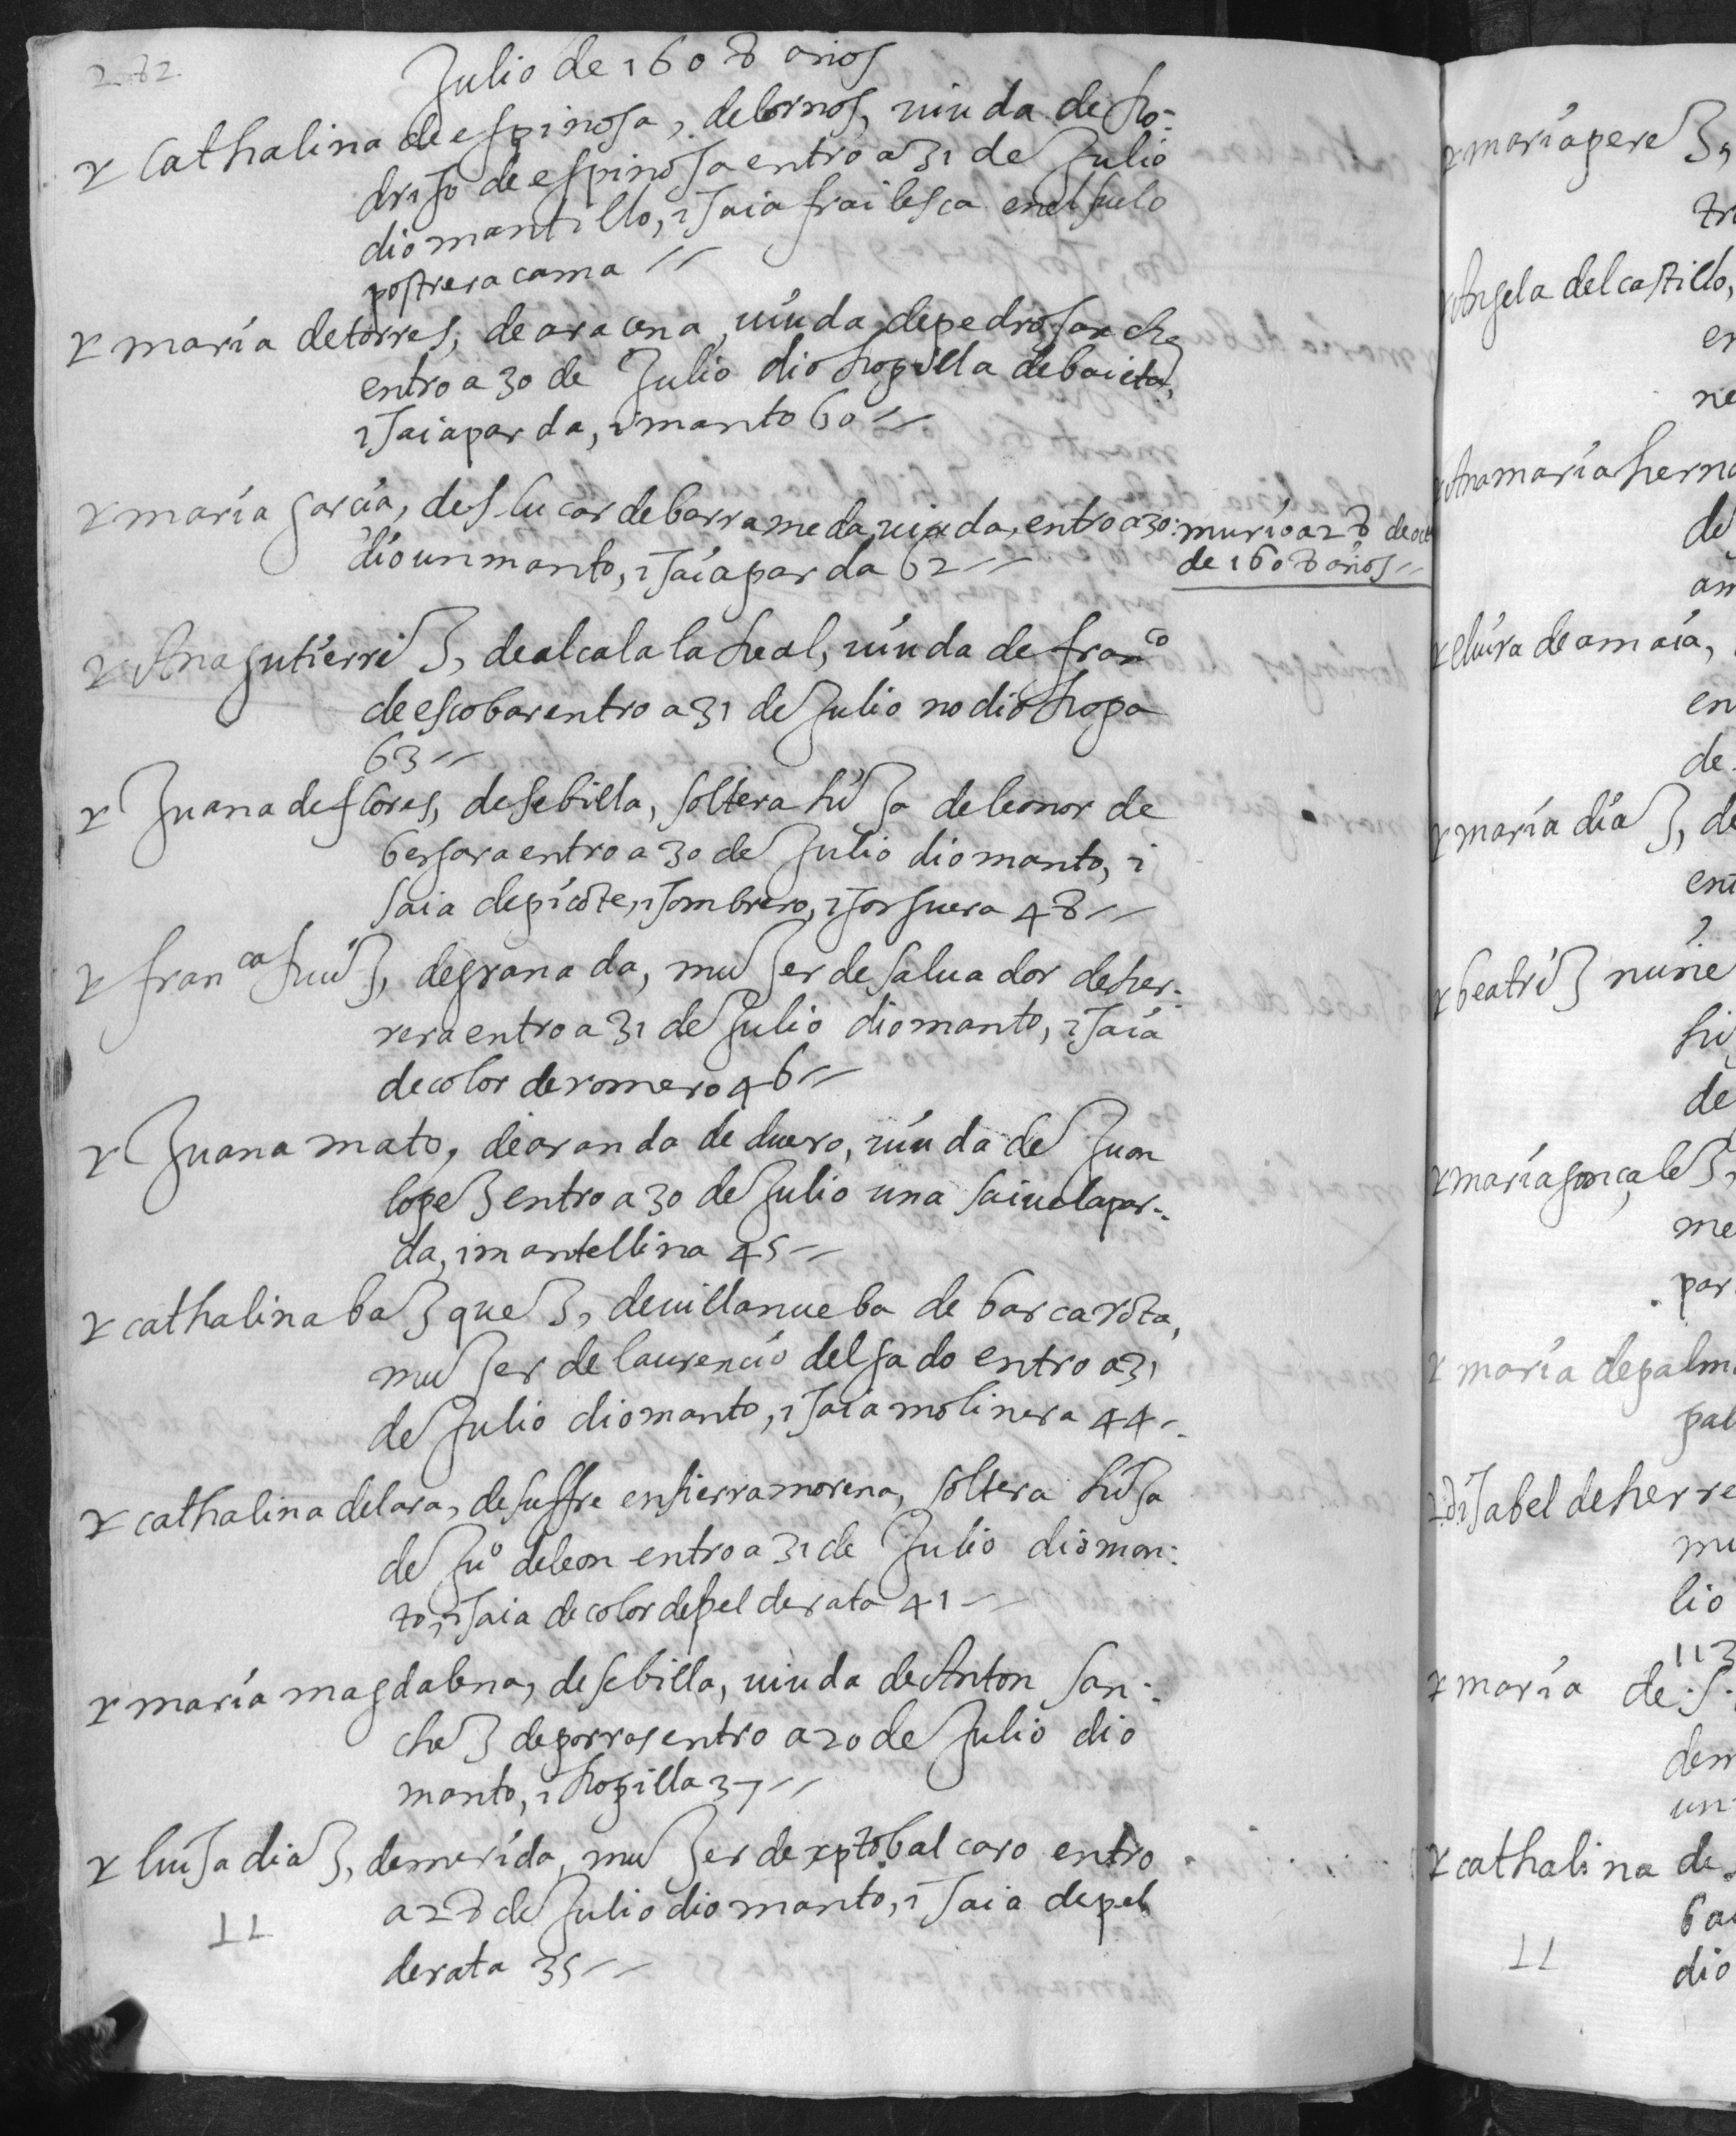 282
Julio de 1608 años
r Cathalina de espinosa, de bornos, uiuda de Ro-
drigo de espinosa entro a 31 de Julio
dio mantillo, i saia frailesca en el suelo
postrera cama //
r maría de torres, de aracena, uiuda de pedro sanchz
entro a 30 de Julio dio Ropilla de baieta,
i saia parda, i manto 60 //
r maría garcía, de S. lucar de barrameda, uiuda, entro a 30:
dio un manto, i saia parda 62 //
murío a 28 de oct
de 1608 años //
r Ana gutierreZ, de alcala la Real, uiuda de franco
de escobar entro a 31 de Julio no dio Ropa
63 //
r Juana de flores, de sebilla, soltera hiJa de leonor de
bergara entro a 30 de Julio dio manto, i
saia de picote, i sombrero, i gorguera 48 //
r franca RuiZ, de granada, muJer de saluador de her-
rera entro a 31 de Julio dio manto, i saia
de color de romero 46 //
r Juana mato, de aranda de duero, uiuda de Juan
lopeZ entro a 30 de Julio una saiuela par-
da, i mantellina 45 //
r cathalina baZqueZ, de uillanueba de barcarota,
muJer de laurencio delgado entro a 31
de Julio dio manto, i saia molinera 44 //
r cathalina de lara, de suffre en sierra morena, soltera hiJa
de Juo de leon entro a 31 de Julio dio man-
to, i saia de color de pel de rata 41 //
r maría magdalena, de sebilla, uiuda de Anton San-
cheZ de porras entro a 20 de Julio dio
manto, i Ropilla 37 //
r luisa diaZ, de merida, muJer de xptobal caro entro
a 28 de Julio dio manto, i saia de pel
de rata 35 //
r maría pereZ,
r Angela del castillo,
r Ana maría herna
de
r eluira de amaia,
en
de
r maría diaZ, de
r beatriZ nuñe
de
r maría gonçaleZ,
me
par
r maría de palm
pal
r dª isabel de herre
mu
lio
113
r maría de S.
un
r cathalina de
ba
dio